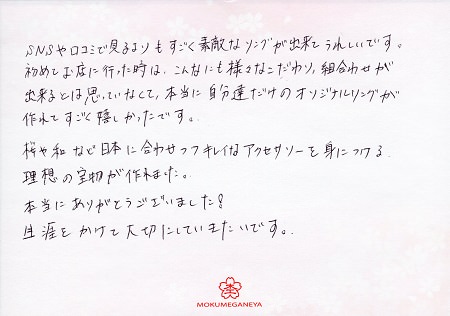 SNSや口コミで見るよりもすごく素敵なリングが出来てうれしいです。
初めてお店に行った時は、こんなにも様々なこだわり、組合わせが
出来るとは思っていなくて、本当に自分達だけのオリジナルリングが
作れてすごく嬉しかったです。
桜や和など日本に合わせつつキレイなアクセサリーを身につける
理想の宝物が作れました。
本当にありがとうございました!
生涯をかけて大切にしていきたいです。
MOKUMEGANEYA